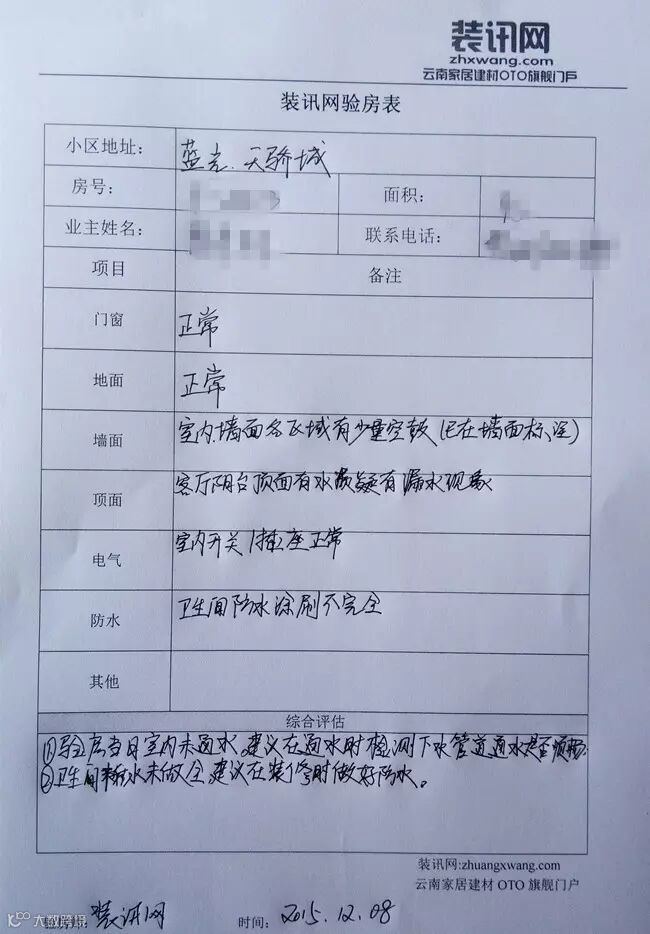 装讯网
zhxwang.com
云南家居建材OTO旗舰门户
装讯网验房表
小区地址： 蓝光.天骄城
房号： 面积：
业主姓名： 联系电话：
项目 备注
门窗 正常
地面 正常
墙面 室内墙面各区域有少量空鼓(已在墙面标注)
顶面 客厅阳台顶面有水渍疑有漏水现象
电气 室内开关插座正常
防水 卫生间防水涂刷不完全
其他
综合评估
①验房当日室内未通水,建议在通水时检测下水管道通水是否顺畅.
②卫生间防水未做全建议在装修时做好防水。
装讯网:zhuangxwang.com
云南家居建材 OTO 旗舰门户
装讯网 时间： 2015.12.08
大数跨境